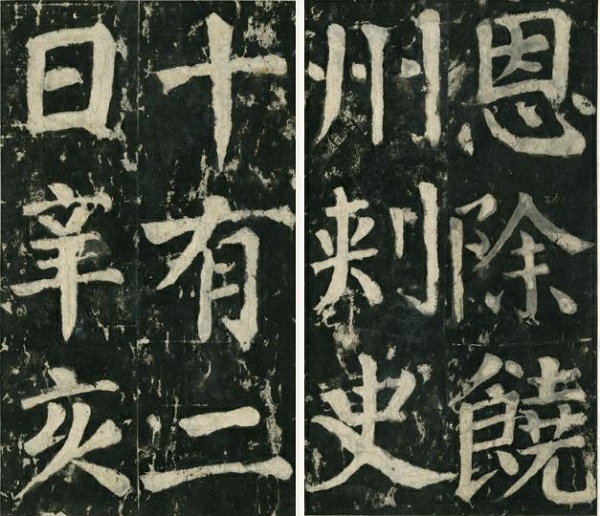 恩除饒
州刾史
十有二
日辛亥